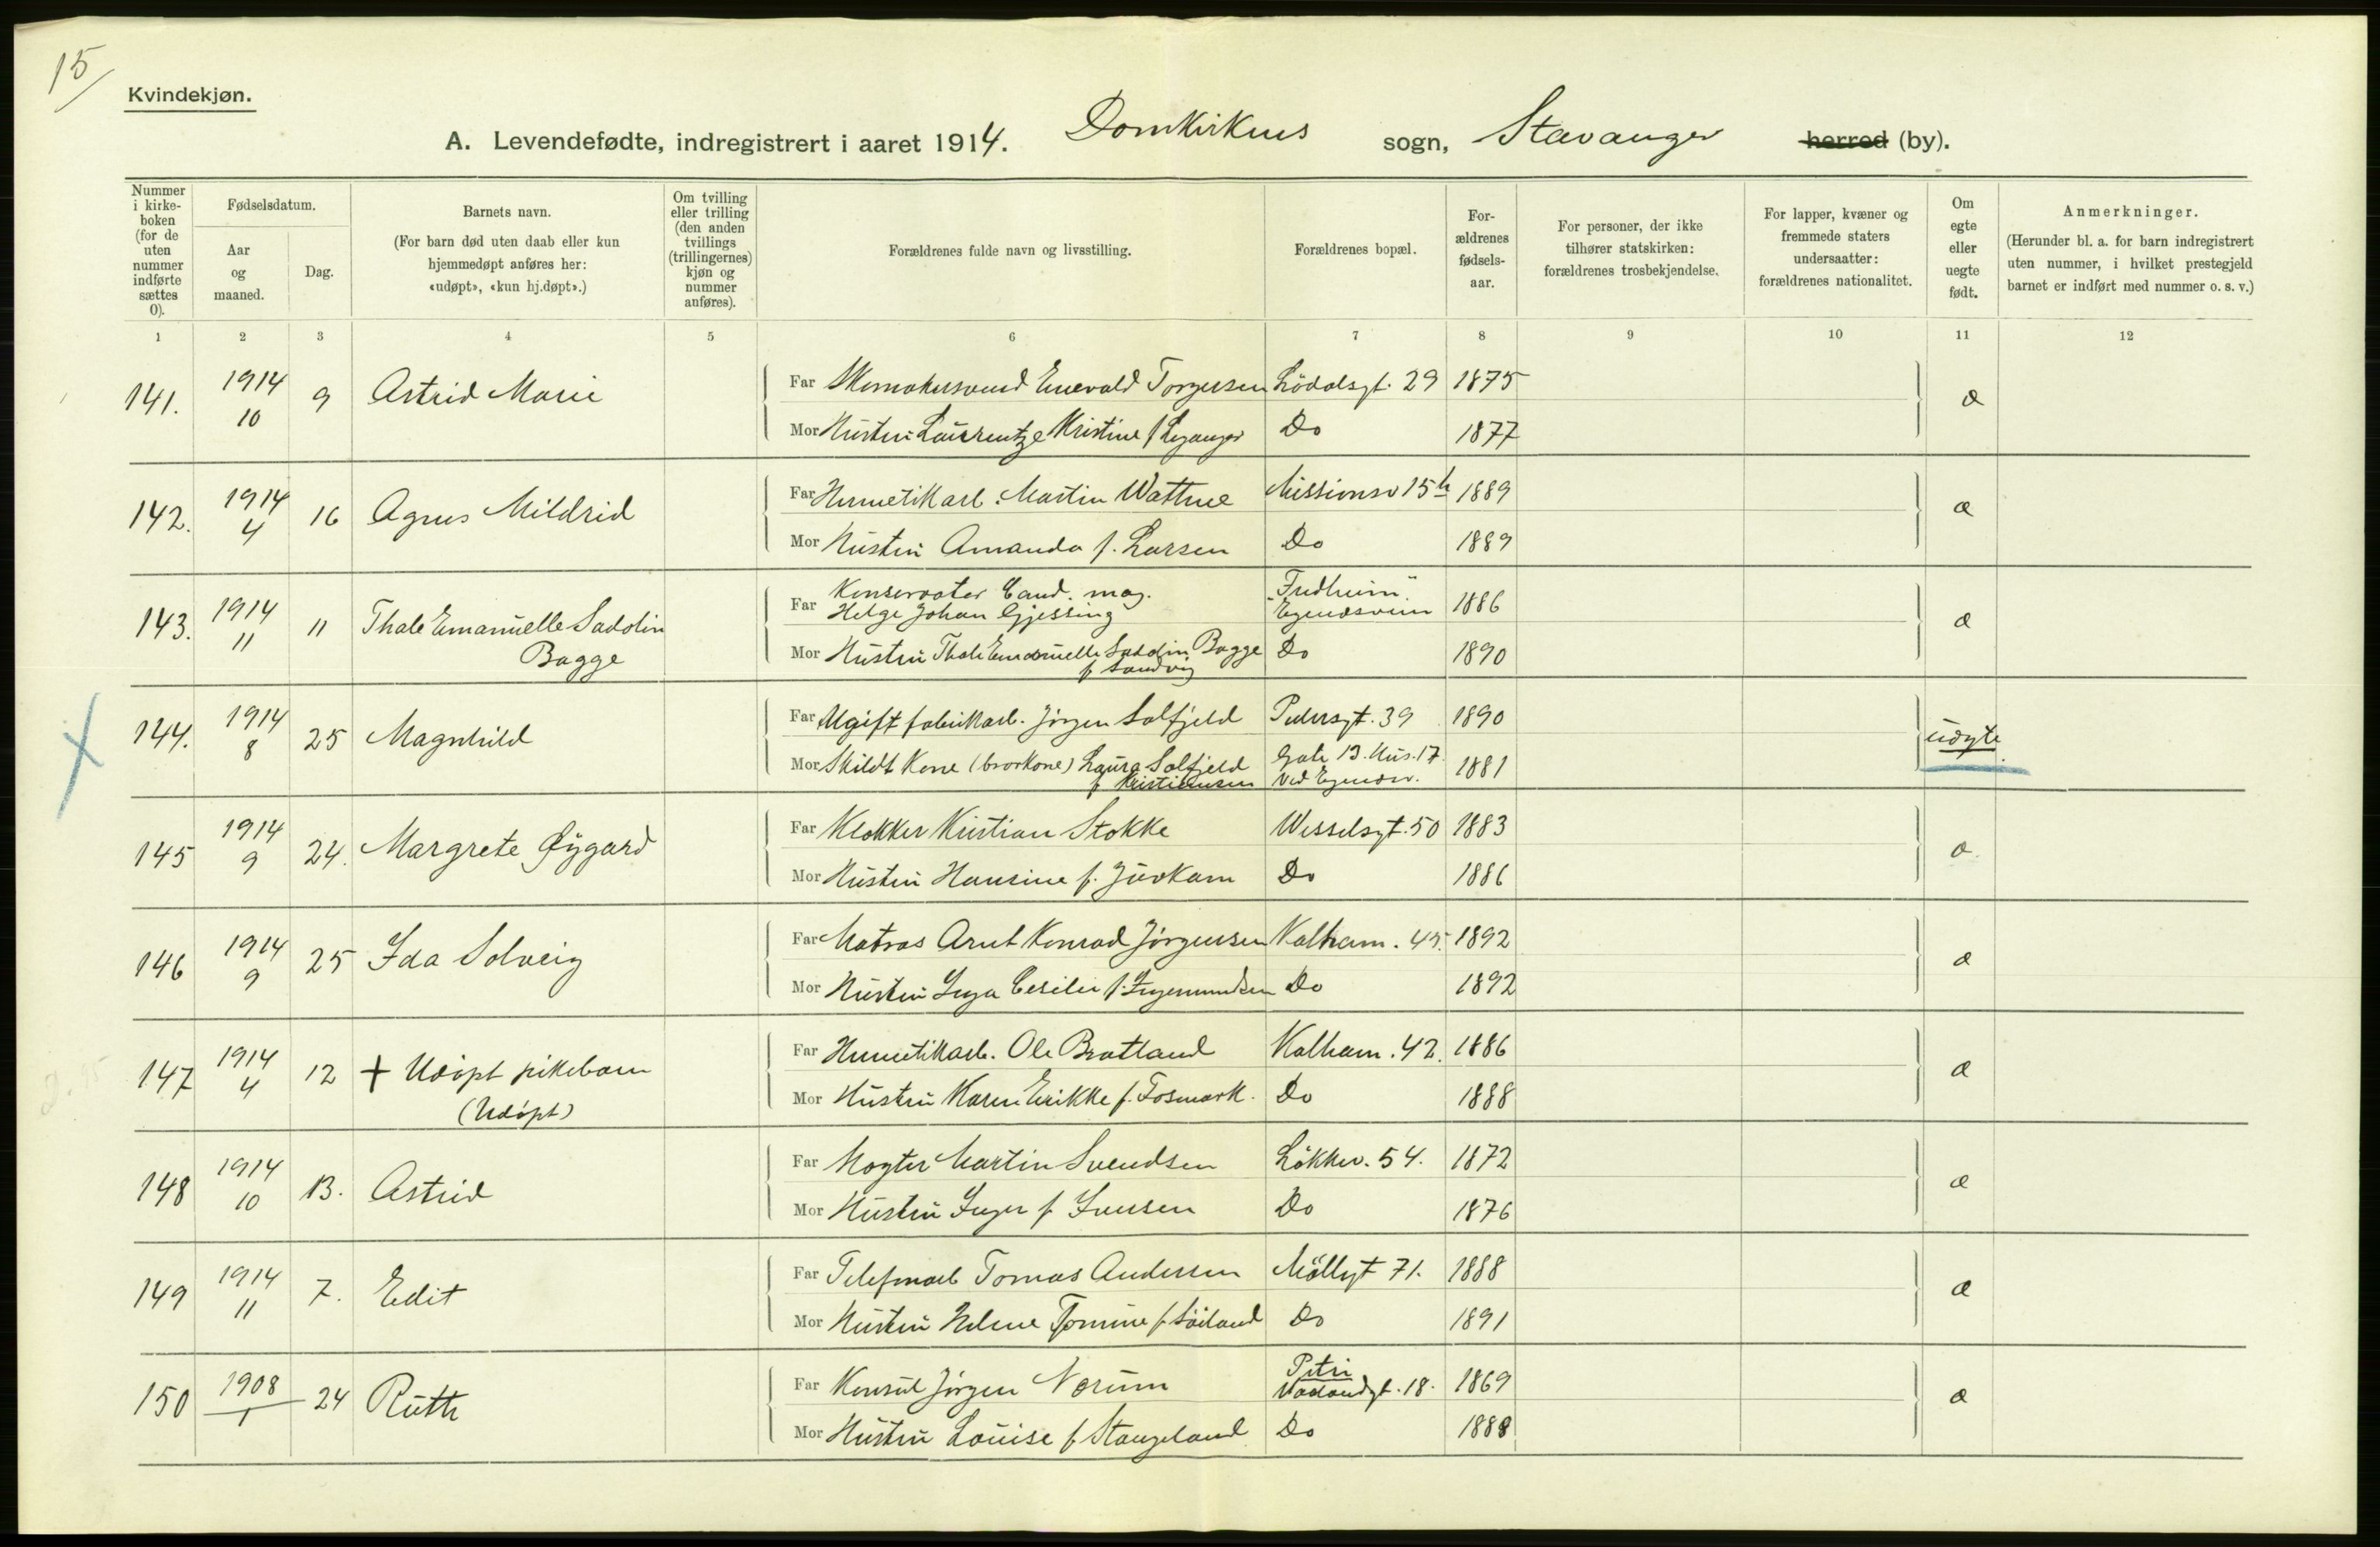 15
Kvindekjøn.
A. Levendefødte, indregistrert i aaret 1914. Domkirkens sogn, Stavanger herred (by).
Nummer i kirke-boken (for de uten nummer indførte sættes 0).
Fødselsdatum.
Aar og maaned.
Dag.
Barnets navn.
(For barn død uten daab eller kun hjemmedøpt anføres her: «udøpt», «kun hj.døpt».)
Om tvilling eller trilling (den anden tvillings (trillingernes) kjøn og nummer anføres).
Forældrenes fulde navn og livsstilling.
Forældrenes bopæl.
For-ældrenes fødsels-aar.
For personer, der ikke tilhører statskirken: forældrenes trosbekjendelse.
For lapper, kvæner og fremmede staters undersaatter: forældrenes nationalitet.
Om egte eller uegte født.
Anmerkninger.
(Herunder bl. a. for barn indregistrert uten nummer, i hvilket prestegjeld barnet er indført med nummer o. s. v.)
1 2 3 4 5 6 7 8 9 10 11 12
141. 1914 10 9 Astrid Marie
Far Skomakersvend Enevald Torgersen Lödalsgt. 29 1875
Mor Hustru Laurentze Kristine f Leganger Do 1877
æ
142. 1914 4 16 Agnes Mildrid
Far Hermetikarb. Martin Wattne Missionsv 15 b 1889
Mor Hustru Amanda f. Larsen Do 1889
æ
143. 1914 11 11 Thale Emanuelle Sadolin
Bagge
Far Konservator Cand. mag.
Helge Johan Gjessing
"Fredheim" Egenesveien 1886
Mor Hustru Thale Emanuelle Sadolin Bagge
f Sandvig
Do 1890
æ
144. 1914 8 25 Magnhild
Far Ugift fabrikarb. Jörgen Solfjeld Pedersgt. 39 1890
Mor Skildt Kone (brorkone) Laura Solfjeld
f Kristiansen
Gate 13. Hus. 17
ved Egenesv. 1881
uegte
145 1914 9 24. Margrete Øygard
Far Klokker Kristian Stokke Wesselsgt. 50 1883
Mor Hustru Hansine f. Juvkam Do 1886
æ
146 1914 9 25 Ida Solveig
Far Matros Arnt Konrad Jörgensen Kalham. 45. 1892
Mor Hustru Inga Cecilie f. Ingemundsen Do 1892
æ
147 1914 4 12 + Udöpt pikebarn
(Udöpt)
Far Hermetikarb. Ole Bratland Kalham. 42. 1886
Mor Hustru Karen Erikke f. Fosmark. Do 1888
æ
148 1914 10 13. Astrid
Far Vogter Martin Svendsen Lökkev. 54. 1872
Mor Hustru Inger f Iversen Do 1876
æ
149 1914 11 7. Edit
Far Telefonarb Tomas Andersen Möllegt 71. 1888
Mor Hustru Helene Tomine f Söiland Do 1891
æ
150 1908 1 24 Ruth
Far Konsul Jörgen Nerum Petri
Vaalandgt. 18. 1869
Mor Hustru Louise f Stangeland Do 1888
æ